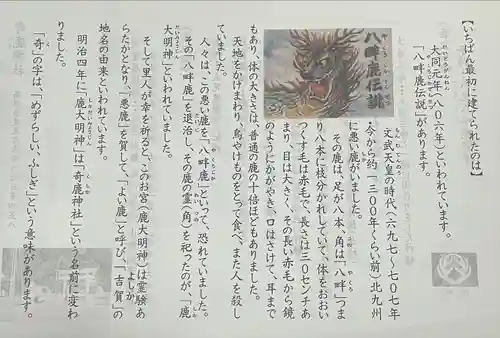 【いちばん最初に建てられたのは】
大同元年(八〇六年)といわれています。
「八畔鹿伝説」があります。
八畔鹿伝説
文武天皇の時代(六九七〜七〇七年
・今から約一三〇〇年くらい前)、北九州
に悪い鹿がいました。
その鹿は、足が八本、角は「八畔」つま
り八本に枝分かれしていて、体をおおい
つくす毛は赤毛で、長さは三〇センチあ
まり、目は大きく、その長い赤毛から鏡
のようにかがやき、口はさけて、耳まで
もあり、体の大きさは、普通の鹿の十倍ほどもありました。
天地をかけまわり、鳥やけものをとって食べ、また人を殺し
ていました。
人々は、この悪い鹿を「八畔鹿」といって、恐れていました。
その「八畔鹿」を退治し、その鹿の霊(角)を祀ったのが、「鹿
大明神」といわれていました。
そして里人が幸を祈ると、このお宮(鹿大明神)は霊験あ
らたかとなり、「悪鹿」を賀して、「よい鹿」と呼び、「吉賀」の
地名の由来といわれています。
明治四年に「鹿大明神」は「奇鹿神社」という名前に変わ
りました。
「奇」の字は、「めずらしい、ふしぎ」という意味があります。